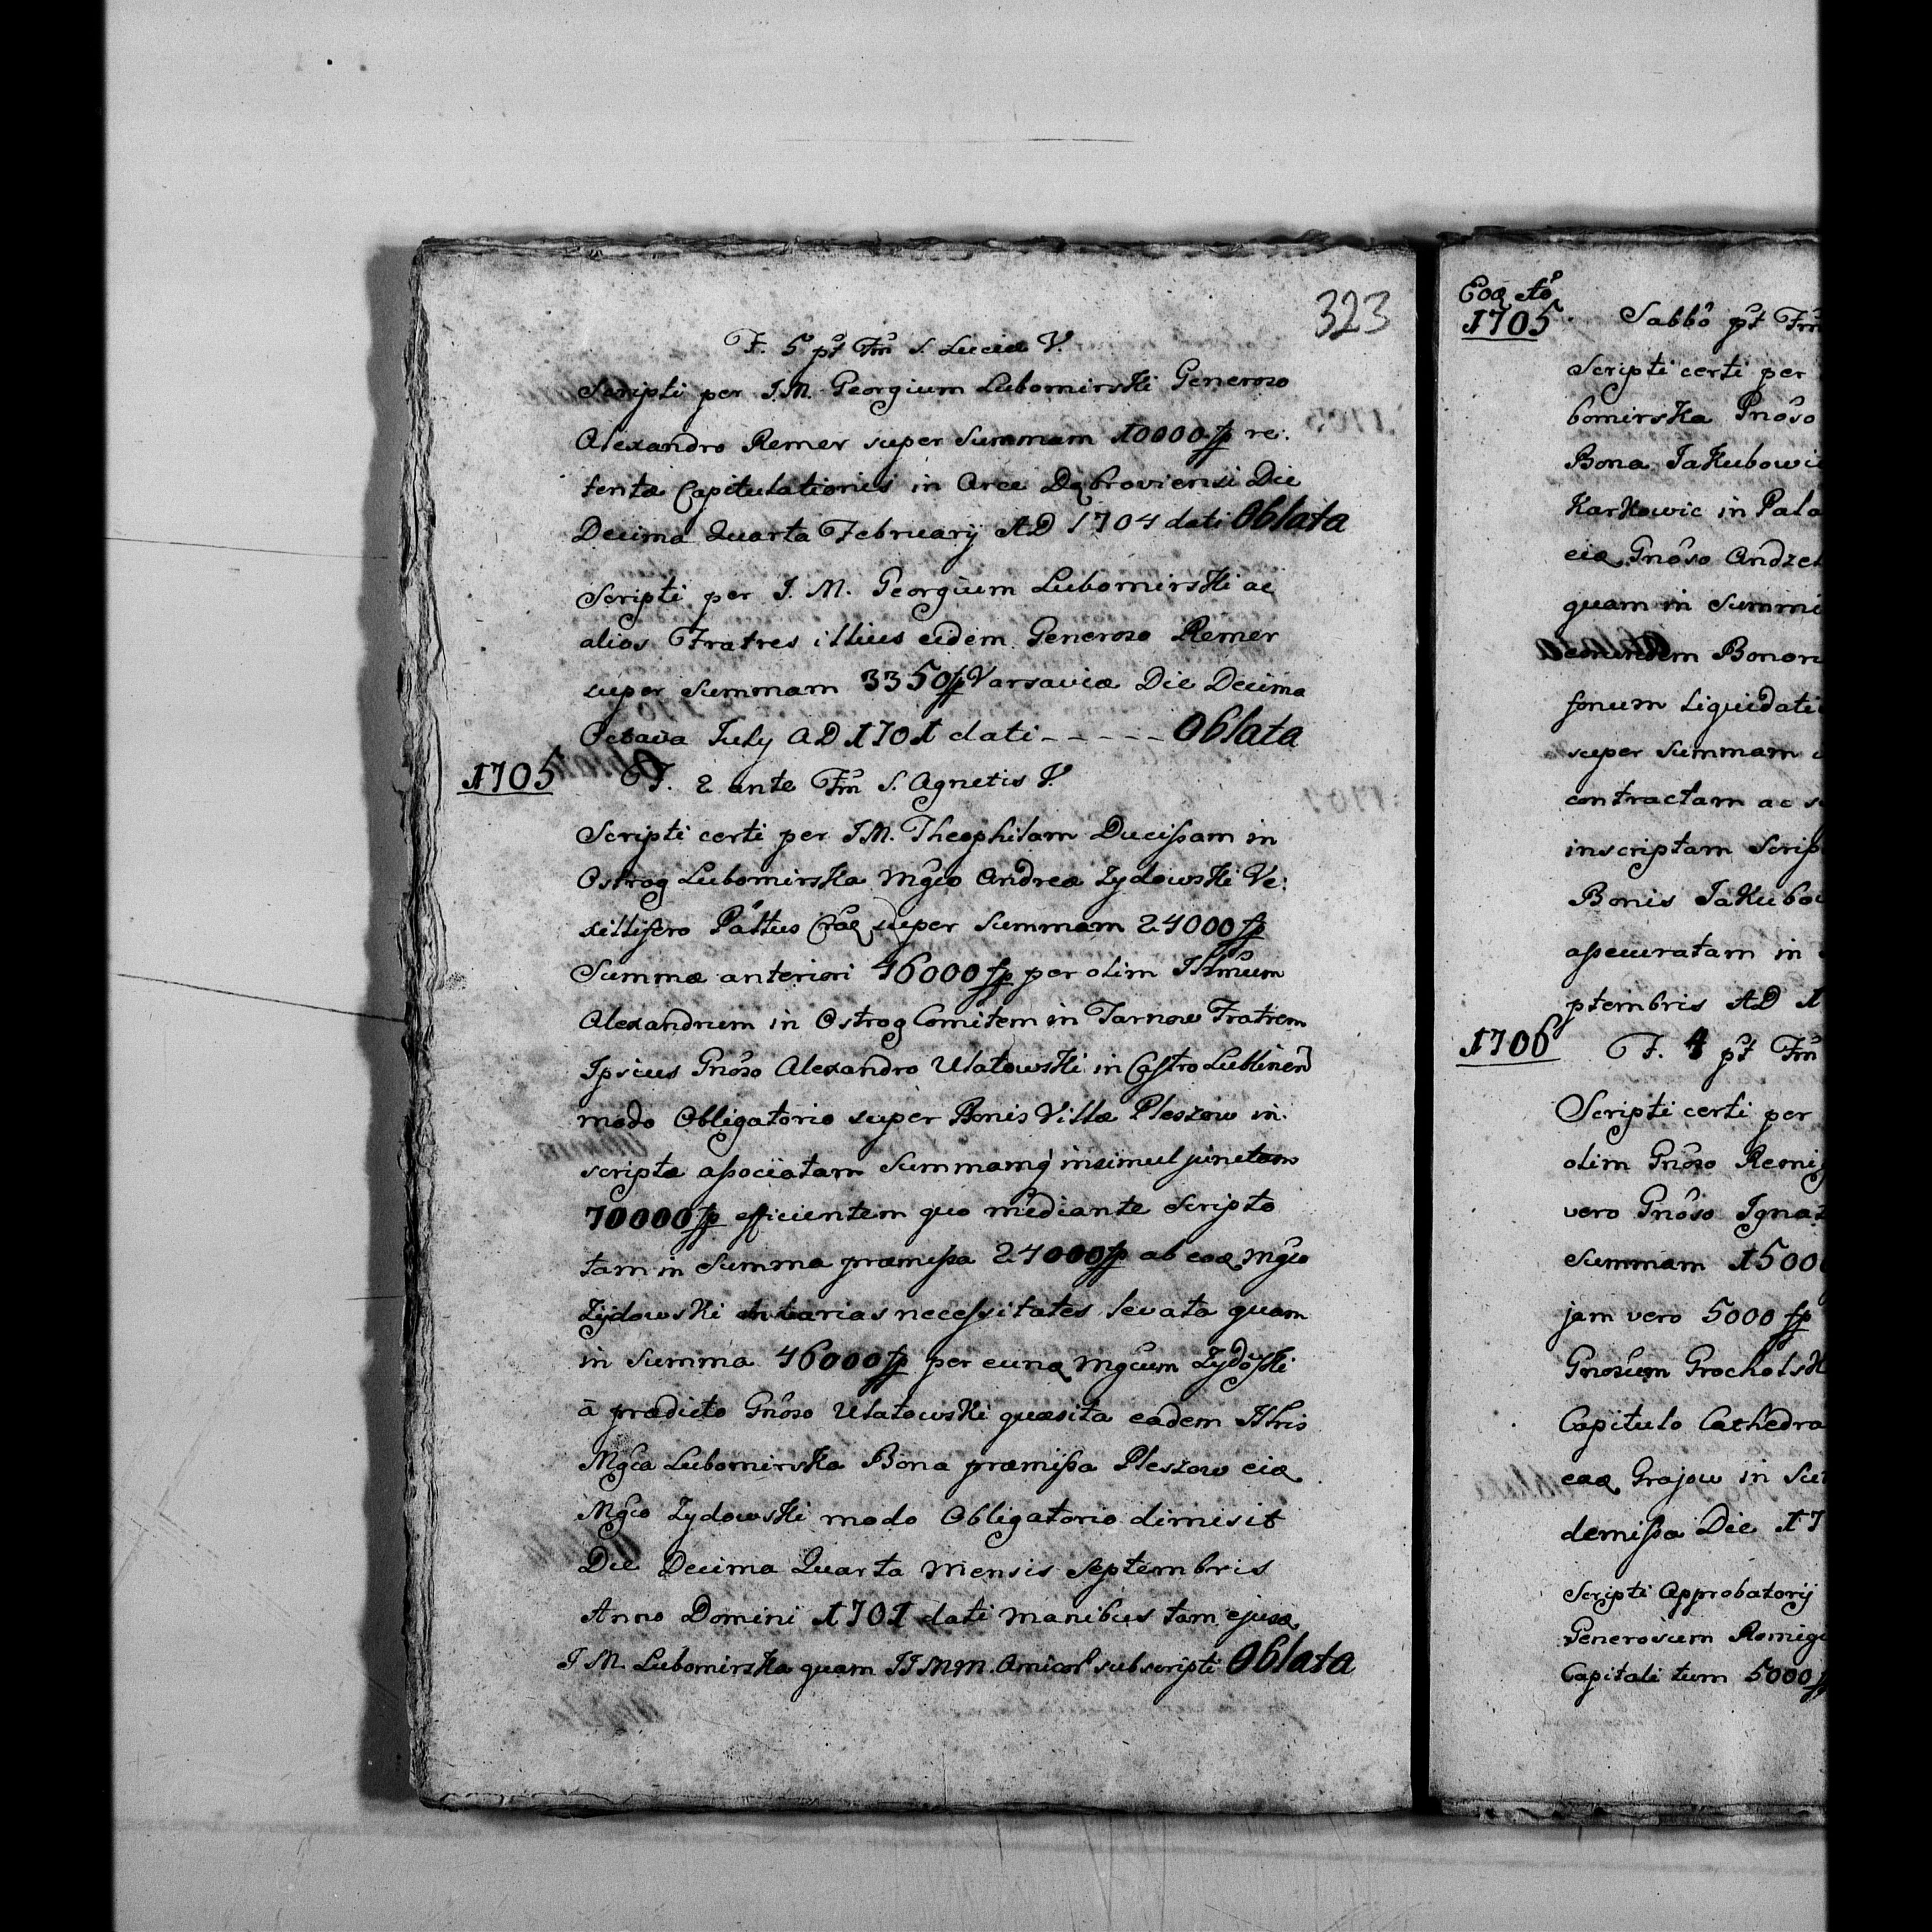 323
F. 5 pt Fm S. Luciæ V.
Scripti per I.M. Georgium Lubomirski Generoso
Alexandro Remer super Summam 10000 fp re:
tentæ Capitulationis in Arce Dąbroviensi Die
Decima Quarta Februarij AD 1704 dati Oblata
Scripti per I. M. Georgium Lubomirski ac
alios Fratres illius eidem Generoso Remer
super Summam 3350 fp Varsaviæ Die Decima
Octava July AD 1701 dati - - - - - Oblata
1705 F. 2 ante Fm S. Agnetis V.
Scripti certi per I.M. Theophilam Ducißam in
Ostrog Lubomirska Mgco Andreæ Zydowski Ve:
xillifero Pàttus Cræ super Summam 24000 fp
Summæ anteriori 46000 fp per olim Illmum
Alexandrum in Ostrog Comitem in Tarnow Fratrem
Ipsius Gnoso Alexandro Ulatowski in Castro Lublinen
modo Obligatorio super Bonis Villæ Pleszow in:
scriptæ aßociatam Summamq insimul junctam
70000 fp efficientem quo mediante Scripto
tam in Summa præmißa 24000 fp ab eoq Mgco
Zydowski in varias neceßitates levata quam
in Summa 46000 fp per eunq Mgcum Zydoski
à prædicto Gnoso Ulatowski quæsita eadem Illris
Mgca Lubomirska Bona præmißa Pleszow eiq
Mgco Zydowski modo Obligatorio dimisit
Die Decima Quarta Mensis Septembris
Anno Domini 1701 dati manibus tam ejusq
I M. Lubomirska quam IIMM. Amicor subscripti Oblata
Eoq Ao
1705 Sabbo pt Fm
Scripti certi per
bomirska Gnoso
Bona Jakubowi
Karkowic in Pala
eiq Gnoso Andre
quam in Summ
eorundem Bonor
sonum Liquidati
super Summam
contractam ac
inscriptam Scrip
Bonis Jakubo
aßecuratam in
ptembris AD 1
1706 F. 4 pt Fm
Scripti certi per
olim Gnoso Remi
vero Gnoso Igna
Summam 1500
jam vero 5000 fp
Gnosum Grochols
Capitulo Cathedra
eaq Grajow in
demißa Die 17
Scripti Approbatorij
Generosum Romig
Capitali tum 5000